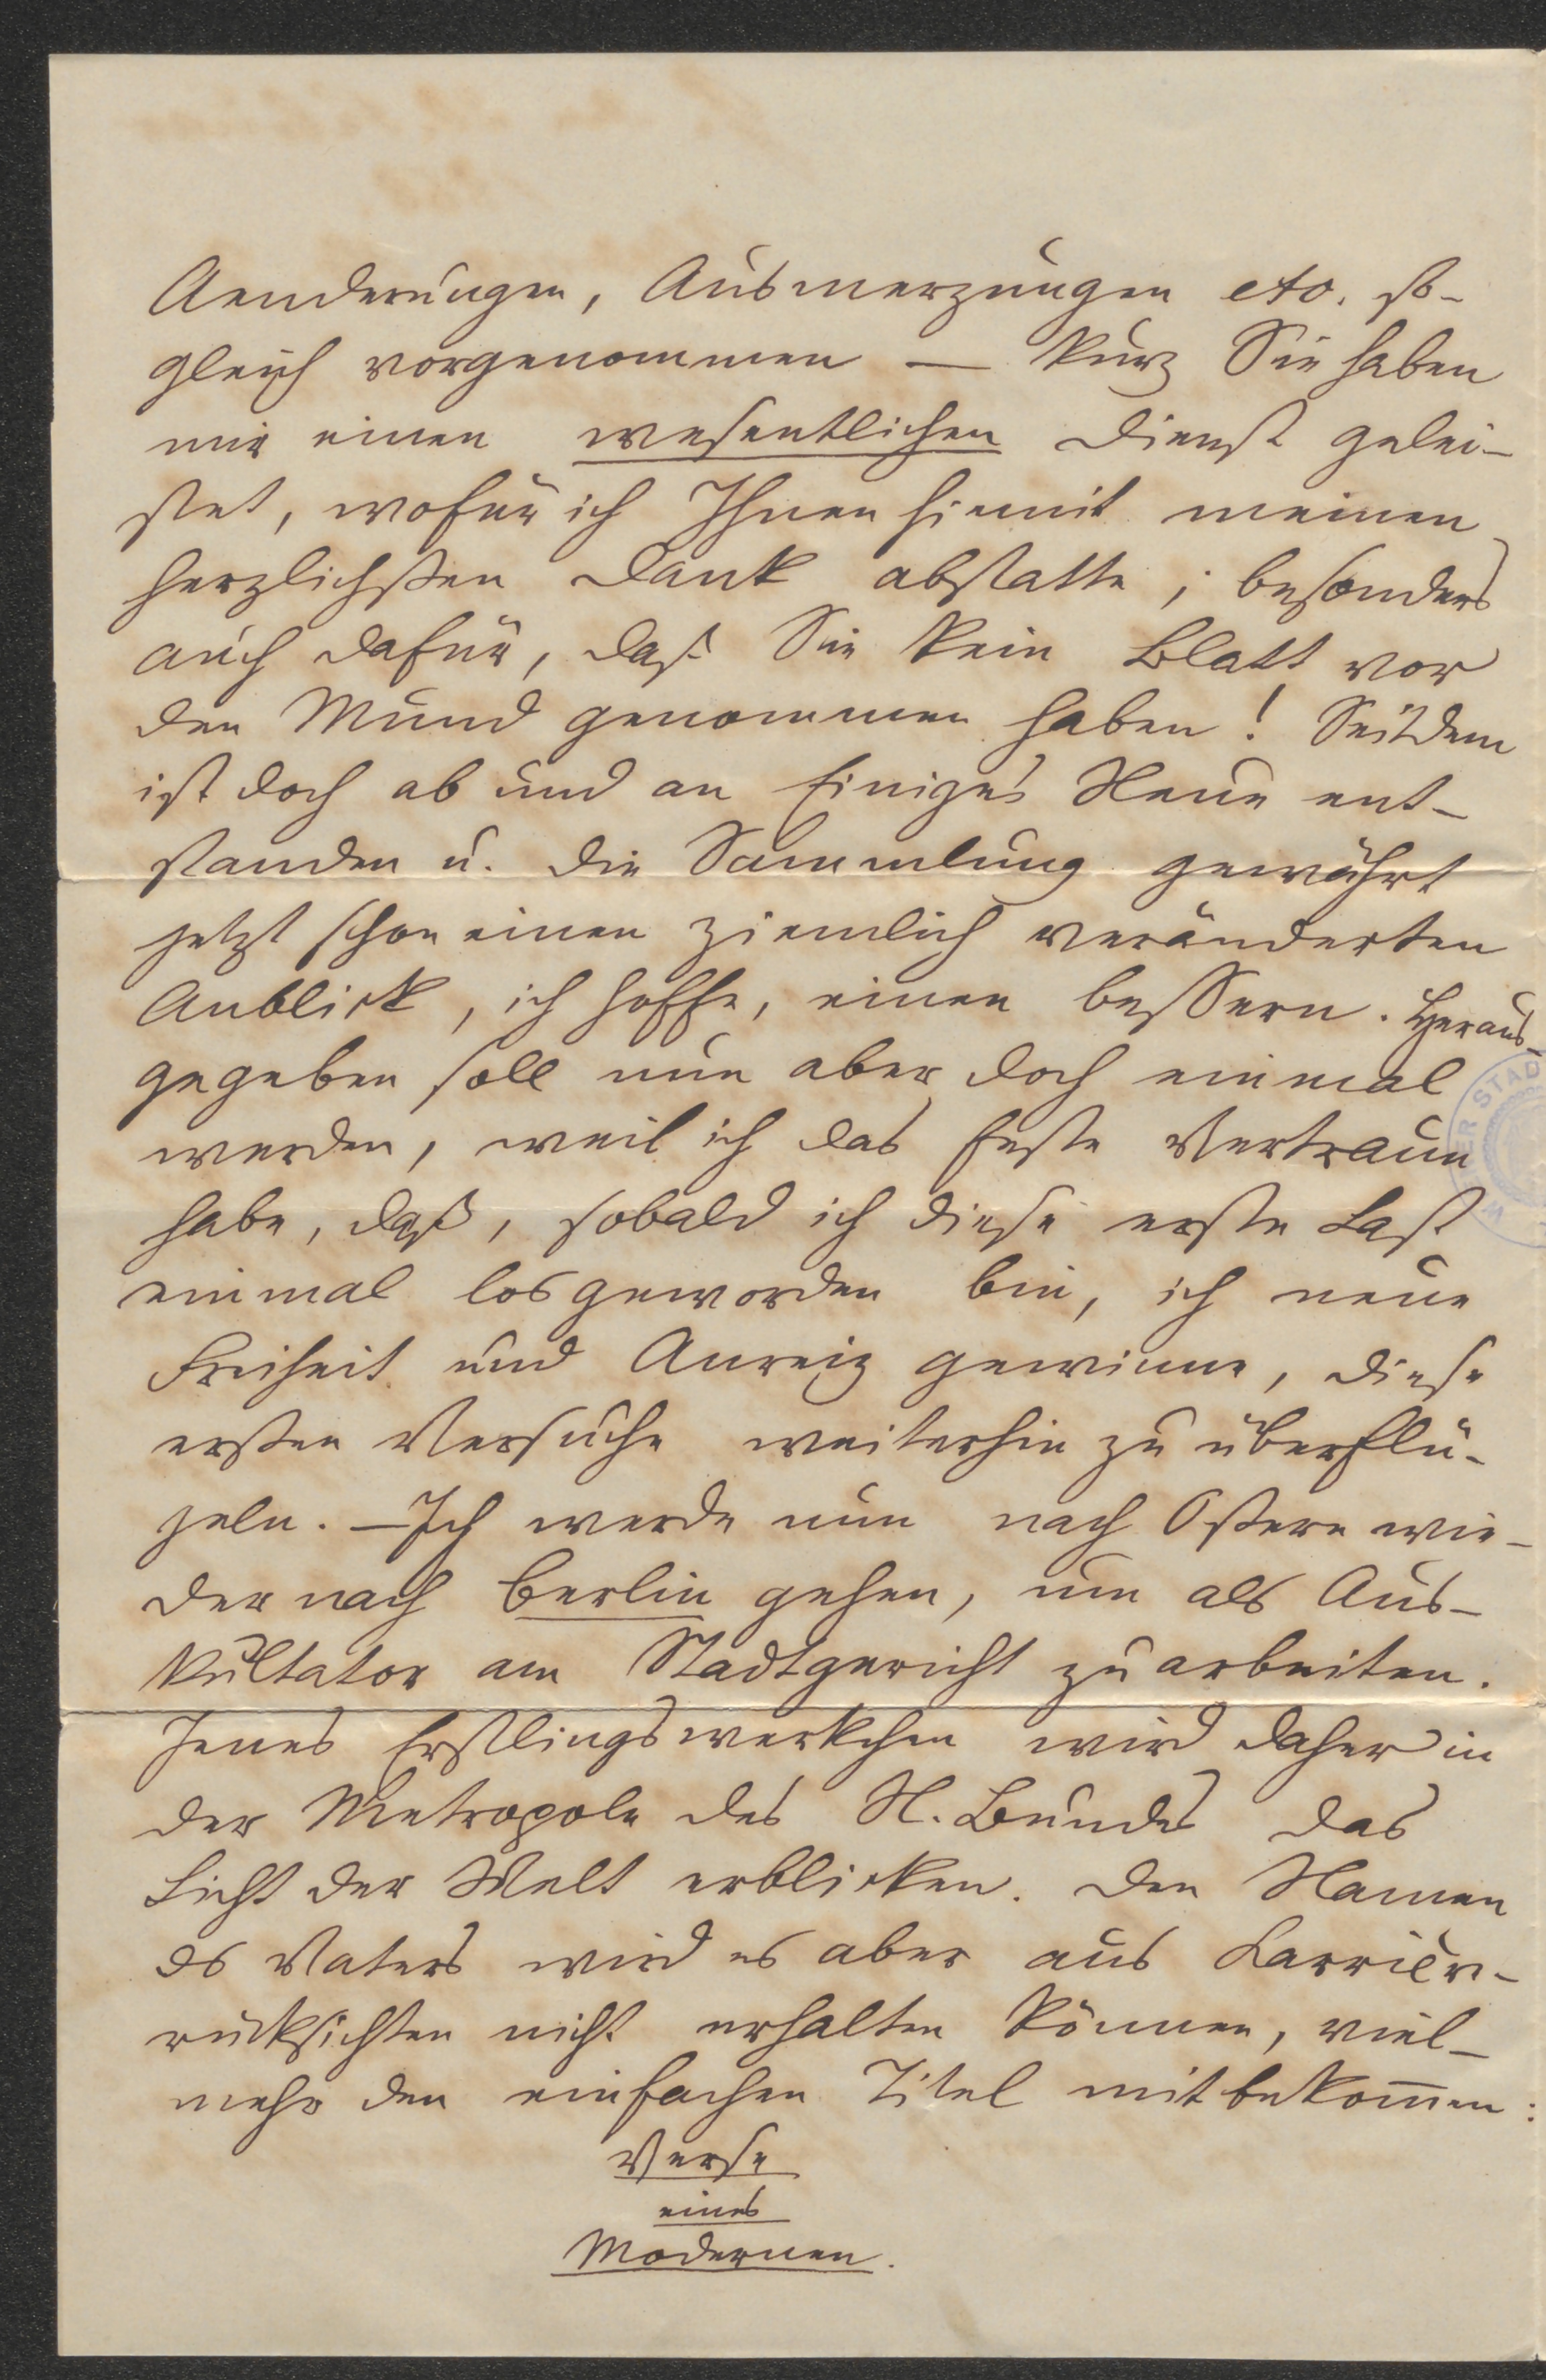 Aenderungen, Ausmerzungen etc. so-
gleich vorgenommen — kurz Sie haben
mir einen wesentlichen Dienst gelei-
stet, wofür ich Ihnen hiemit meinen
herzlichsten Dank abstatte; besonders
auch dafür, daß Sie kein Blatt vor
den Mund genommen haben! Seitdem
ist doch ab und an Einiges Neue ent-
standen u. die Sammlung gewährt
jetzt schon einen ziemlich veränderten
Anblick, ich hoffe, einen bessern. Heraus-
gegeben soll nun aber doch einmal
werden, weil ich das feste Vertraun
habe, daß, sobald ich diese erste Last
einmal losgeworden bin, ich neue
Freiheit und Anreiz gewinne, diese
ersten Versuche weiterhin zu überflü-
geln. — Ich werde nun nach Ostern wie-
der nach Berlin gehen, um als Aus-
kultator am Stadtgericht zu arbeiten.
Jenes Erstlingswerkchen wird daher in
der Metropole des N. Bundes das
Licht der Welt erblicken. Den Namen
des Vaters wird es aber aus Carrièr-
rücksichten nicht erhalten können, viel-
mehr den einfachen Titel mitbekom̅en:
Verse
eines
Modernen.